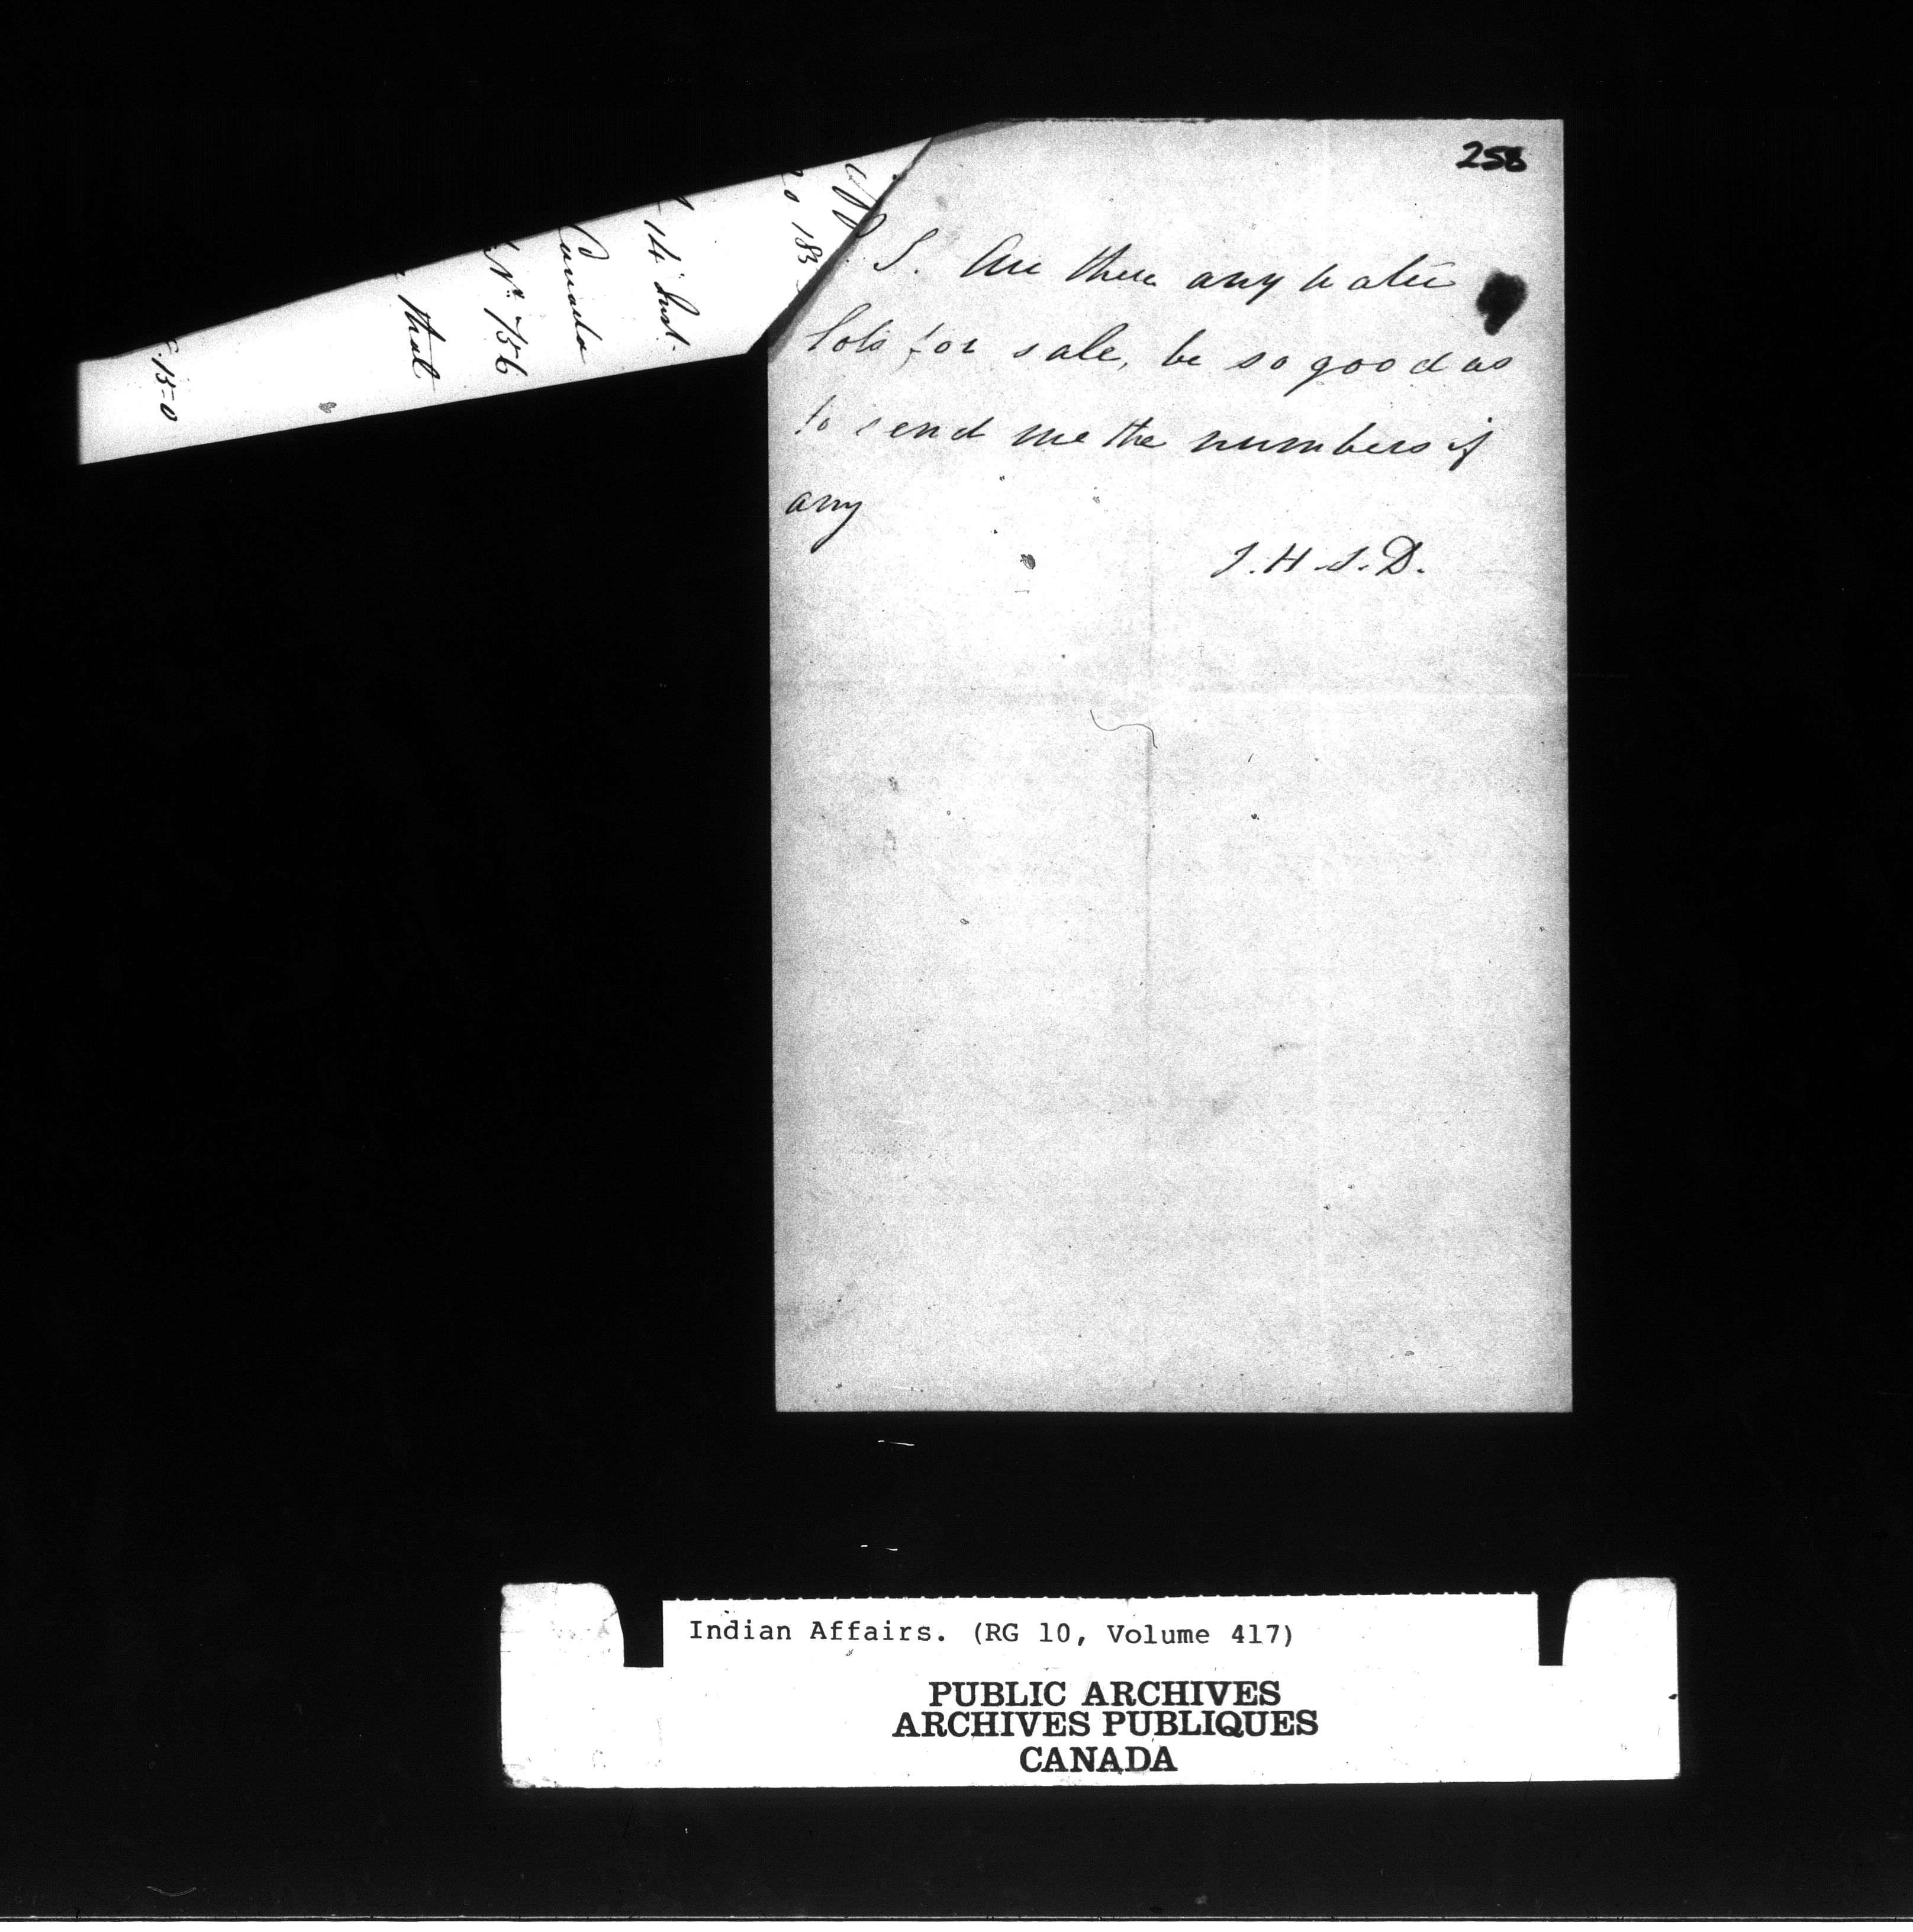 258
S. Are there any water
lots for sale, be so good as
to send me the numbers if
any
J. H. S. D.
14 Inst.
Canada
No. 756
that
15-0
Indian Affairs. (RG 10, Volume 417)
PUBLIC ARCHIVES
ARCHIVES PUBLIQUES
CANADA